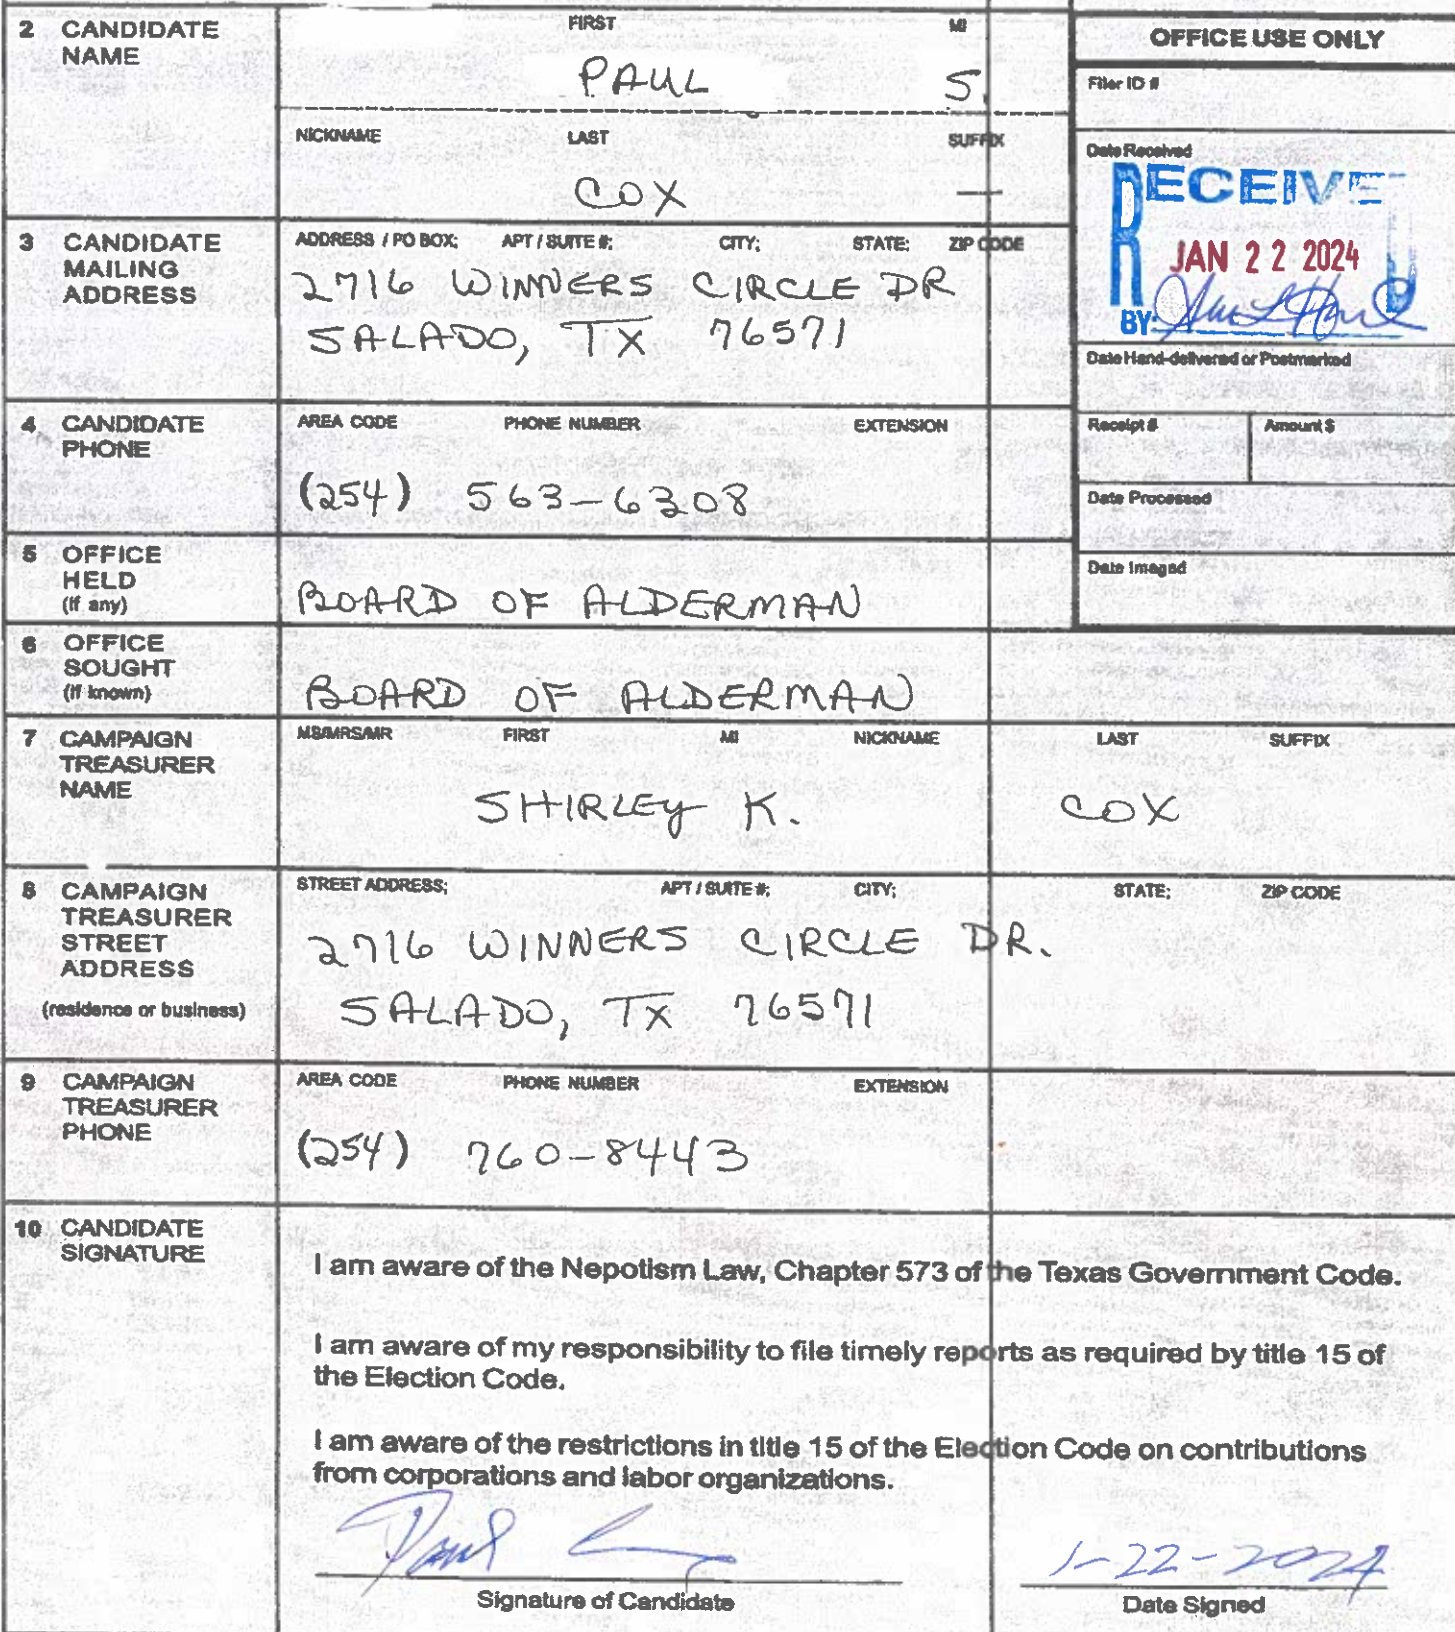 2 CANDIDATE NAME
FIRST MI
PAUL S.
NICKNAME LAST SUFFIX
COX —
OFFICE USE ONLY
Filer ID #
Date Received
RECEIVED
JAN 22 2024
BY:
Date Hand-delivered or Postmarked
Receipt # Amount $
Date Processed
Date Imaged
3 CANDIDATE MAILING ADDRESS
ADDRESS / PO BOX; APT / SUITE #; CITY; STATE; ZIP CODE
2716 WINNERS CIRCLE DR
SALADO, TX 76571
4 CANDIDATE PHONE
AREA CODE PHONE NUMBER EXTENSION
(254) 563-6308
5 OFFICE HELD (if any)
BOARD OF ALDERMAN
6 OFFICE SOUGHT (if known)
BOARD OF ALDERMAN
7 CAMPAIGN TREASURER NAME
MS/MRS/MR FIRST MI NICKNAME LAST SUFFIX
SHIRLEY K. COX
8 CAMPAIGN TREASURER STREET ADDRESS
(residence or business)
STREET ADDRESS; APT / SUITE #; CITY; STATE; ZIP CODE
2716 WINNERS CIRCLE DR.
SALADO, TX 76571
9 CAMPAIGN TREASURER PHONE
AREA CODE PHONE NUMBER EXTENSION
(254) 760-8443
10 CANDIDATE SIGNATURE
I am aware of the Nepotism Law, Chapter 573 of the Texas Government Code.
I am aware of my responsibility to file timely reports as required by title 15 of
the Election Code.
I am aware of the restrictions in title 15 of the Election Code on contributions
from corporations and labor organizations.
Paul 1-22-2024
Signature of Candidate Date Signed